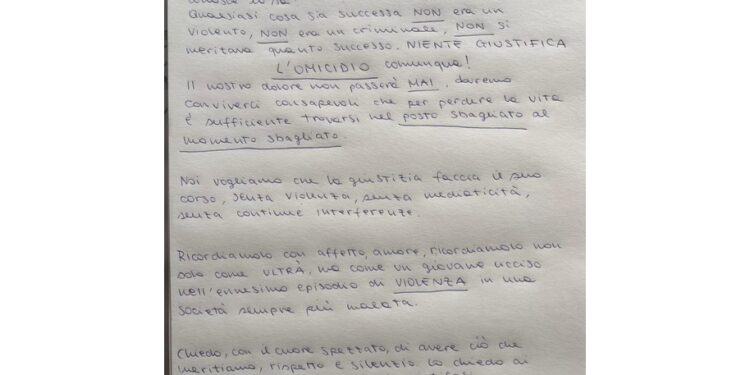 Qualsiasi cosa sia successa NON era un
violento, NON era un criminale, NON si
meritava quanto successo. NIENTE GIUSTIFICA
L'OMICIDIO comunque!
Il nostro dolore non passerà MAI, dovremo
conviverci consapevoli che per perdere la vita
è sufficiente trovarsi nel posto sbagliato al
momento sbagliato.
Noi vogliamo che la giustizia faccia il suo
corso, senza violenza, senza mediaticità,
senza continue interferenze.
Ricordiamolo con affetto, amore, ricordiamolo non
solo come ULTRÀ, ma come un giovane ucciso
nell'ennesimo episodio di VIOLENZA in una
società sempre più malata.
Chiedo, con il cuore spezzato, di avere ciò che
meritiamo, rispetto e silenzio. Lo chiedo ai